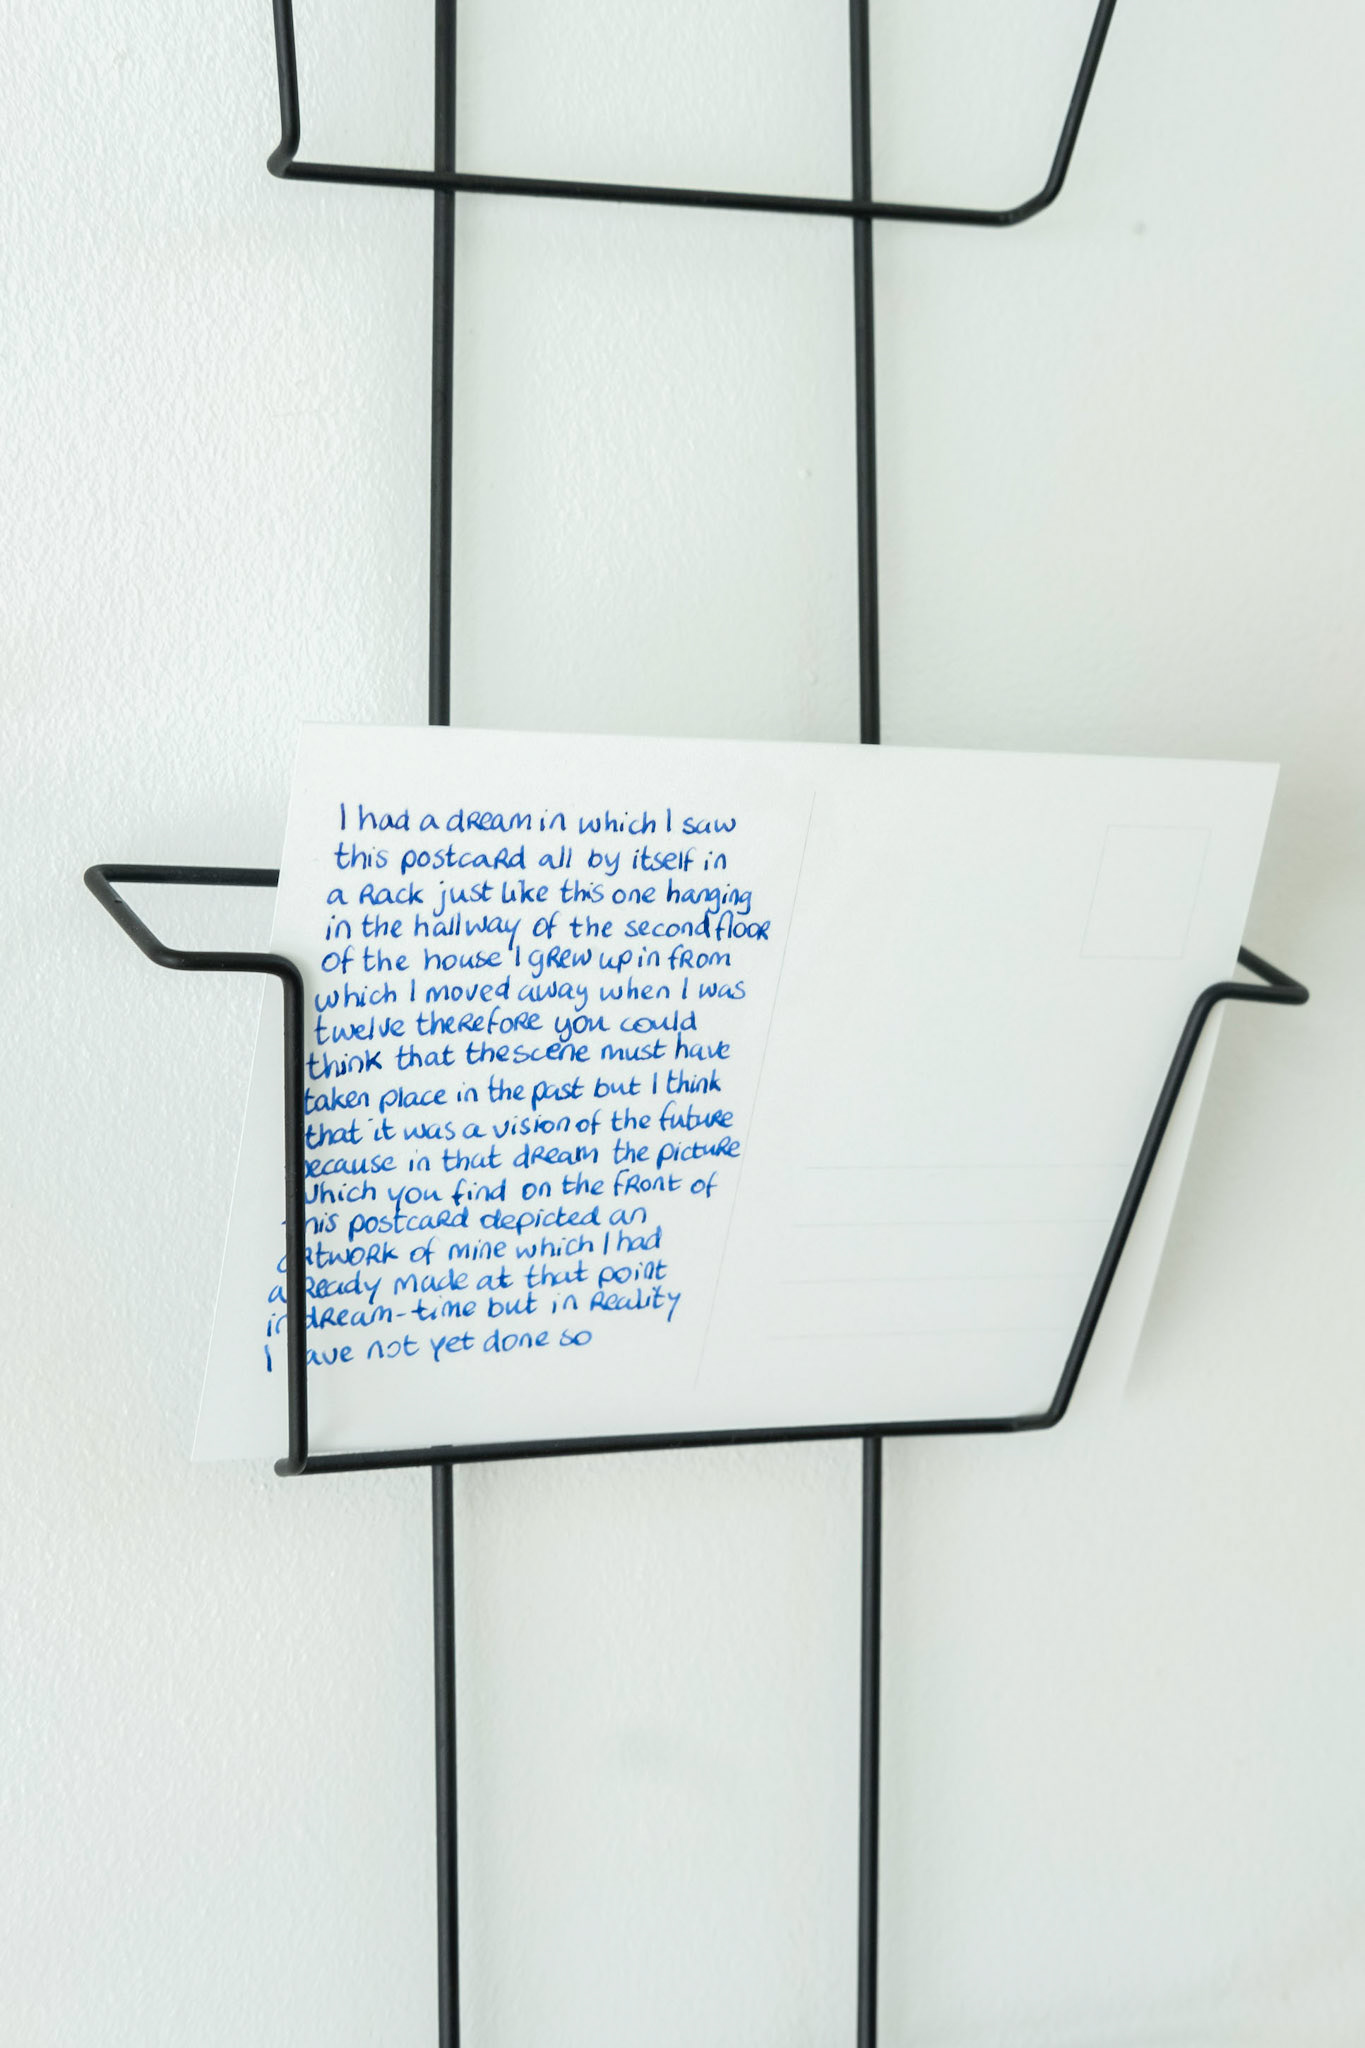 I had a dream in which I saw
this postcard all by itself in
a rack just like this one hanging
in the hallway of the second floor
of the house I grew up in from
which I moved away when I was
twelve therefore you could
think that the scene must have
taken place in the past but I think
that it was a vision of the future
because in that dream the picture
which you find on the front of
this postcard depicted an
artwork of mine which I had
already made at that point
in dream-time but in reality
I have not yet done so